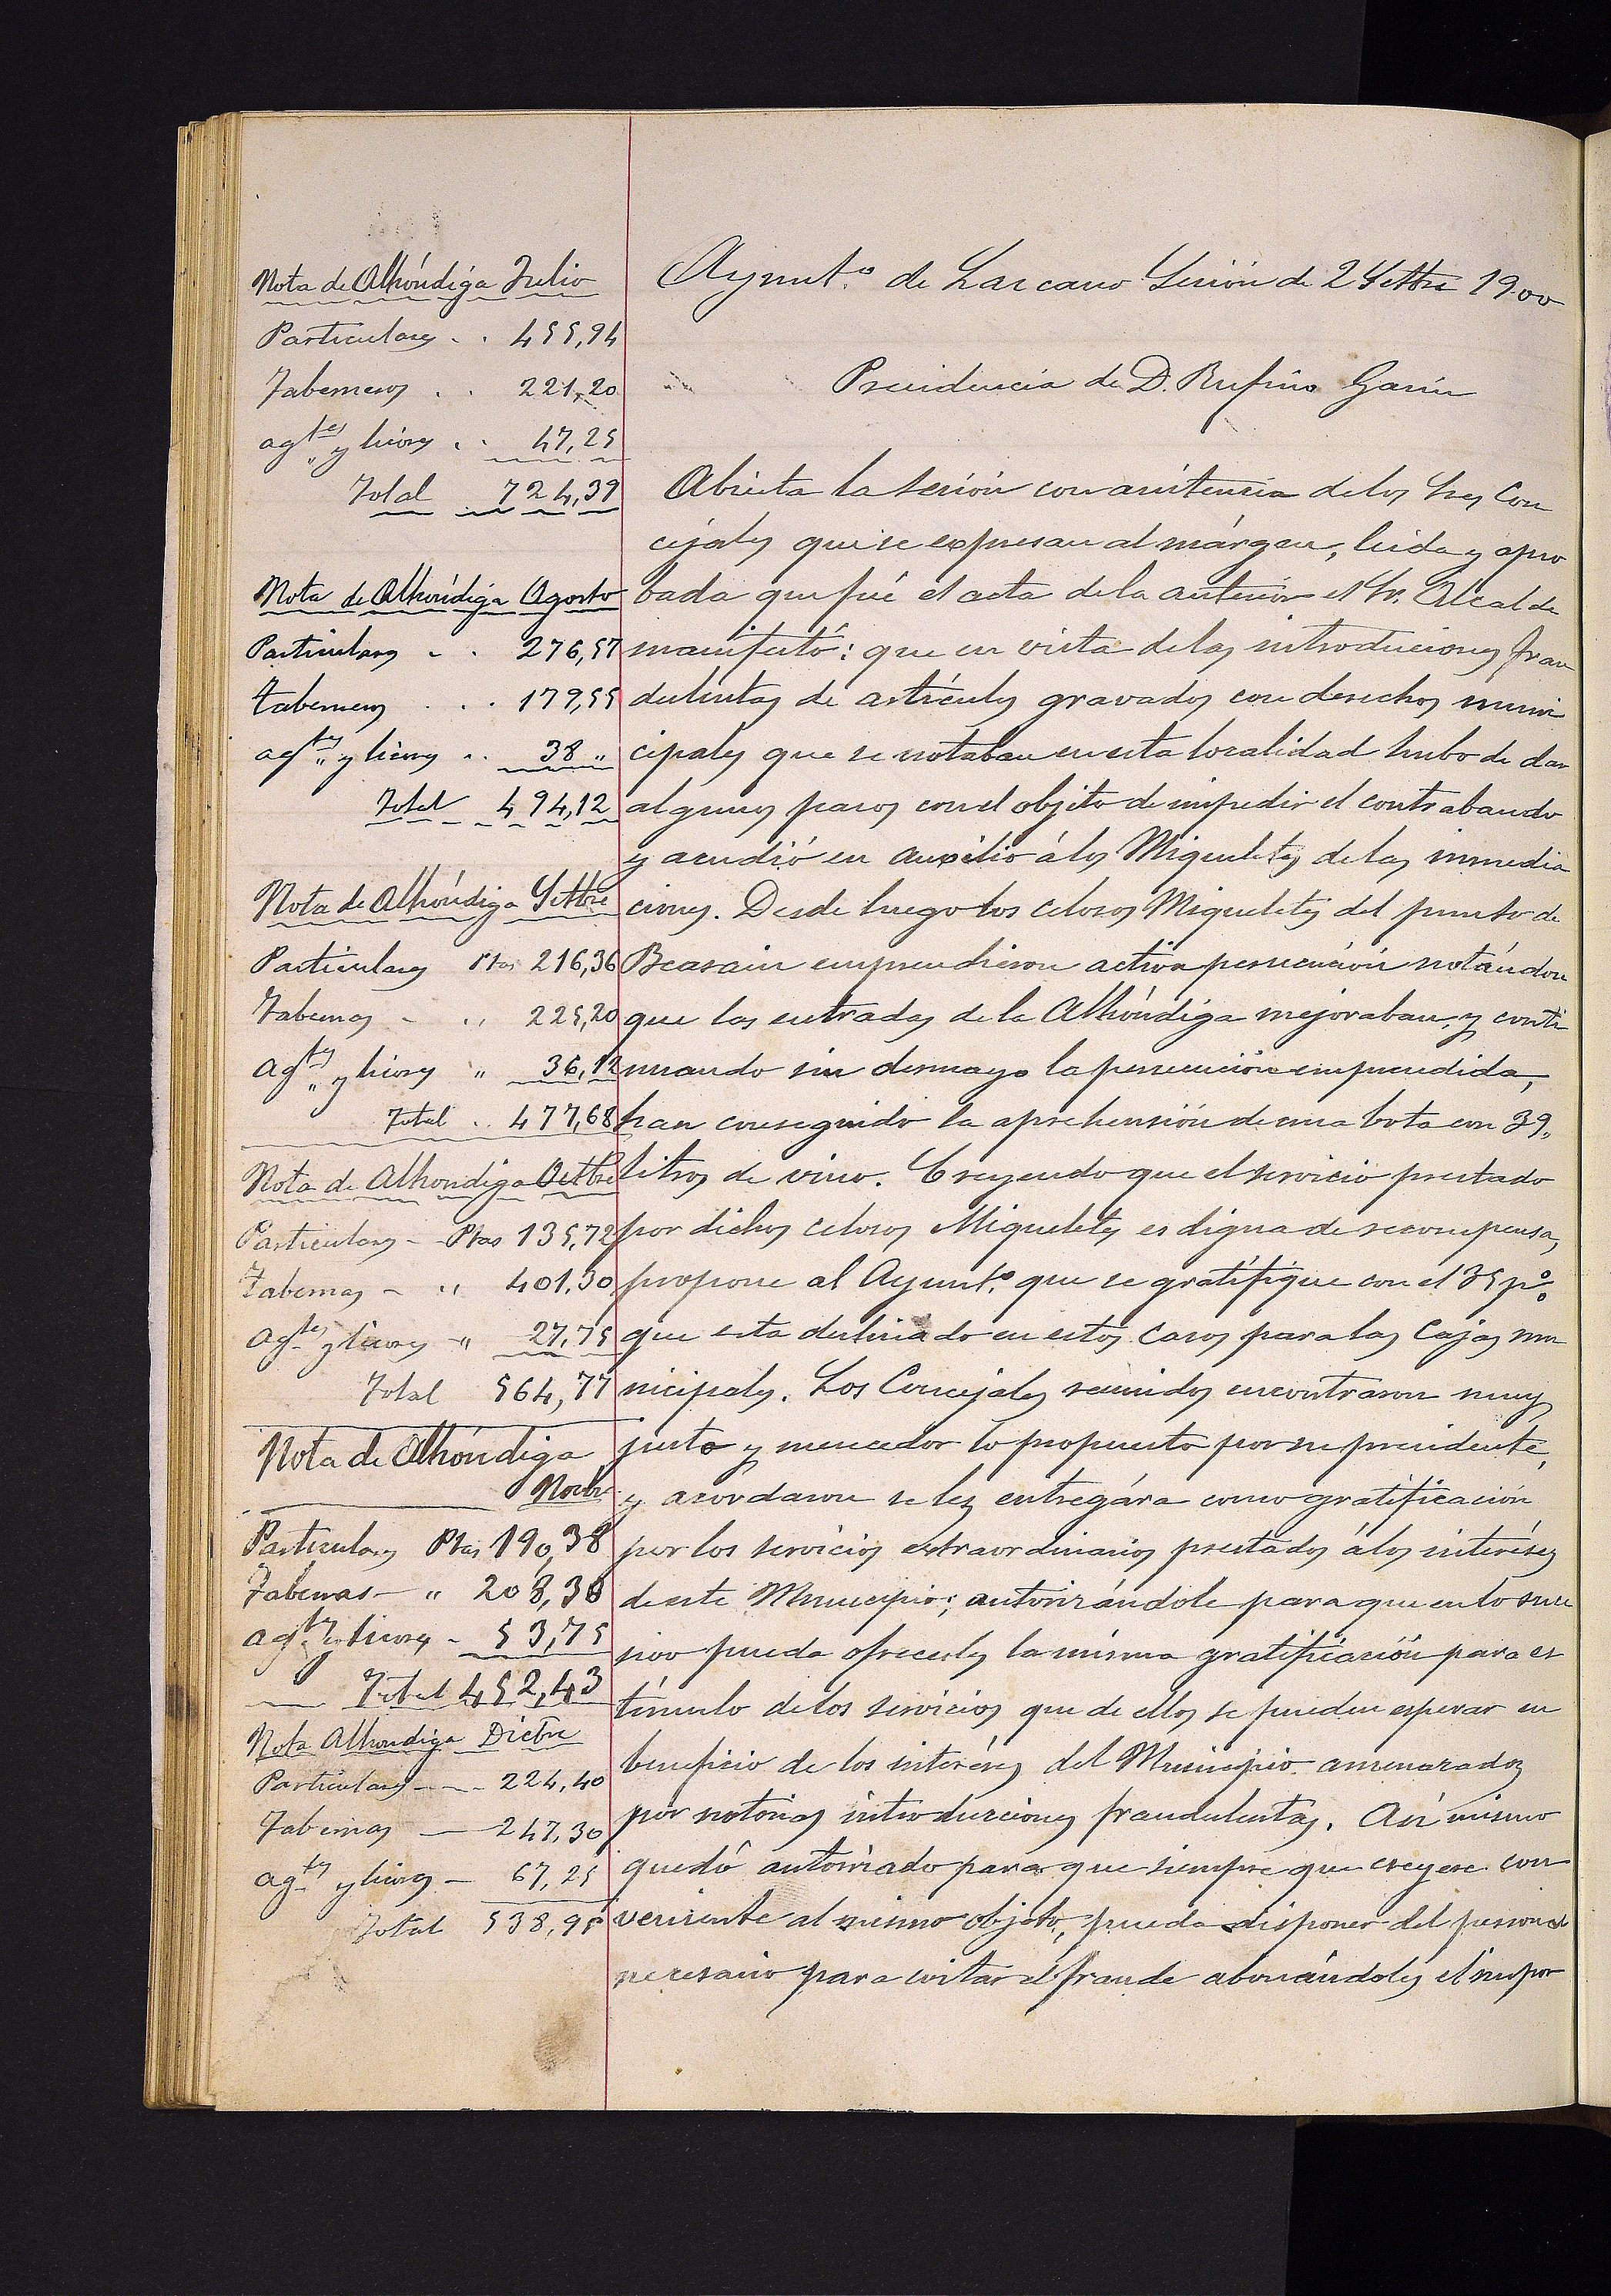 Nota de Alhóndiga Julio
Particulares . . 455,94
Taberneros . . 221,20
agtes y licores . . 47,25
Total 724,39
Nota de Alhóndiga Agosto
Particulares . . 276,57
Taberneros . . . 179,55
agtes y licores . . 38 "
Total 494,12
Nota de Alhóndiga Settbre
Particulares Ptas 216,36
Tabernas - " 225,20
Agtes y licores " 36,12
Total . . 477,68
Nota de Alhondiga Octtbre
Particulares - Ptas 135,72
Tabernas - " 401,30
Agtes y licores - " 27,75
Total 564,77
Nota de Alhóndiga
Novbre
Particulares Ptas 190,38
Tabernas - " 208,30
agtes y licores - 53,75
Total 452,43
Nota Alhondiga Dicbre
Particulares - - - 224,40
Tabernas - 247,30
agtes y licores - 67,25
Total 538,95
Ayunt.º de Lazcano Sesión de 2 Settbre 1900
Presidencia de D. Rufino Garin
Abierta la sesión con asistencia de los Sres Con
cejales que se expresan al márgen, leida y apro
bada que fué el acta de la anterior el Sr. Alcalde
manifestó: que en vista de las introduciones frau
dulentas de artículos gravados con derechos muni
cipales que se notaban en esta localidad hubo de dar
algunos pasos con el objeto de impedir el contrabando
y acudió en auxilio á los Migueletes de las inmedia
ciones. Desde luego los celosos Migueletes del punto de
Beasain emprendieron activa persecución notándose
que las entradas de la Alhóndiga mejoraban, y conti
nuando sin desmayo la persecución emprendida,
han conseguido la aprehensión de una bota con 39,
litros de vino. Creyendo que el servicio prestado
por dichos celosos Migueletes es digna de recompensa,
propone al Ayunt.º que se gratifique con el 35 p%
que esta destinado en estos casos para las Cajas mu
nicipales. Los Concejales reunidos encontraron muy
justo y merecedor lo propuesto por su presidente,
y acordaron se les entregára como gratificación
por los servicios extraordinarios prestados á los interéses
de este Municipio; autorizándole para que en lo suce
sivo pueda ofrecerles la misma gratificación para es
tímulo de los servicios que de ellos se pueden esperar en
beneficio de los interéses del Municipio amenazados
por notorias introducciones fraudulentas. Así mismo
quedó autorizado para que siempre que creyese con
veniente al mismo objeto, pueda disponer del personal
necesario para evitar el fraude abonándoles el impor